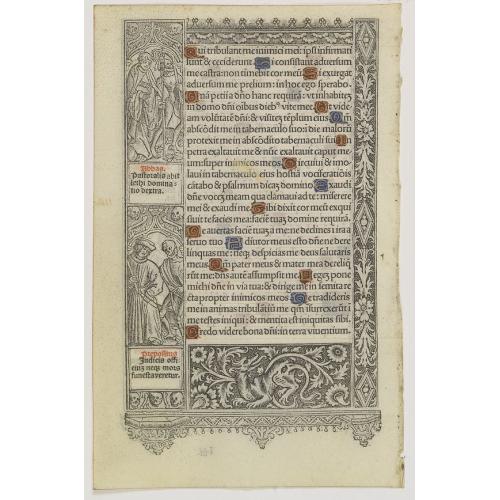 Qui tribulant me inimici mei: ipsi infirmati
sunt & ceciderunt. Si consistant adversum
me castra: non timebit cor meũ. Si exurgat
adversum me prelium: in hoc ego sperabo.
Unã petii a dño hanc requirã: vt inhabitẽ
in domo dñi oibus dieb⁹ vite mee. Ut vidẽ
am volũtatẽ dñi: & visitẽ tẽplum eius. Qm̃
abscõdit me in tabernaculo suo: ĩ die malorũ
protexit me in abscõdito tabernaculi sui. In
petra exaltauit me & nũc exaltauit caput me-
um: super inimicos meos. Circuiui & imo-
laui in tabernaculo eius hostiã vociferatiõis
cãtabo & psalmum dicaʒ domino. Exaudi
dñe vocẽ meam qua clamaui ad te: miserere
mei & exaudi me. Tibi dixit cor meũ exqui
siuit te facies mea: faciẽ tuaʒ domine requirã.
Ne auertas faciẽ tuaʒ a me: ne declines ĩ ira a
seruo tuo. Adiutor meus esto dñe ne dere
linquas me: neqʒ despicias me deus salutaris
meus. Qm̃ pater meus & mater mea dereliq̃
rũt me: dñs autẽ assumpsit me. Legeʒ pone
michi dñe in via tua: & dirige me in semita re
cta propter inimicos meos. Ne tradideris
me in animas tribulãtiũ me qm̃ isurrexerũt ĩ
me testes iniqui: & mentita est iniquitas sibi.
Credo videre bona dñi: in terra viuentium.
Abbas.
Pastoralis abit
lethi domina-
tio dextra.
Prepositus
Iudicis offi
ciuʒ neqʒ mors
funesta veretur.